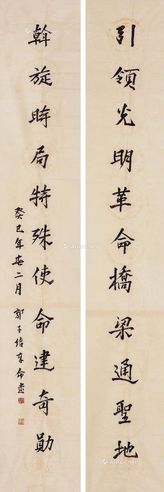 引領光明革命橋梁通聖地
斡旋時局特殊使命建奇勛
癸巳年春二月 鄭子倍奉命書